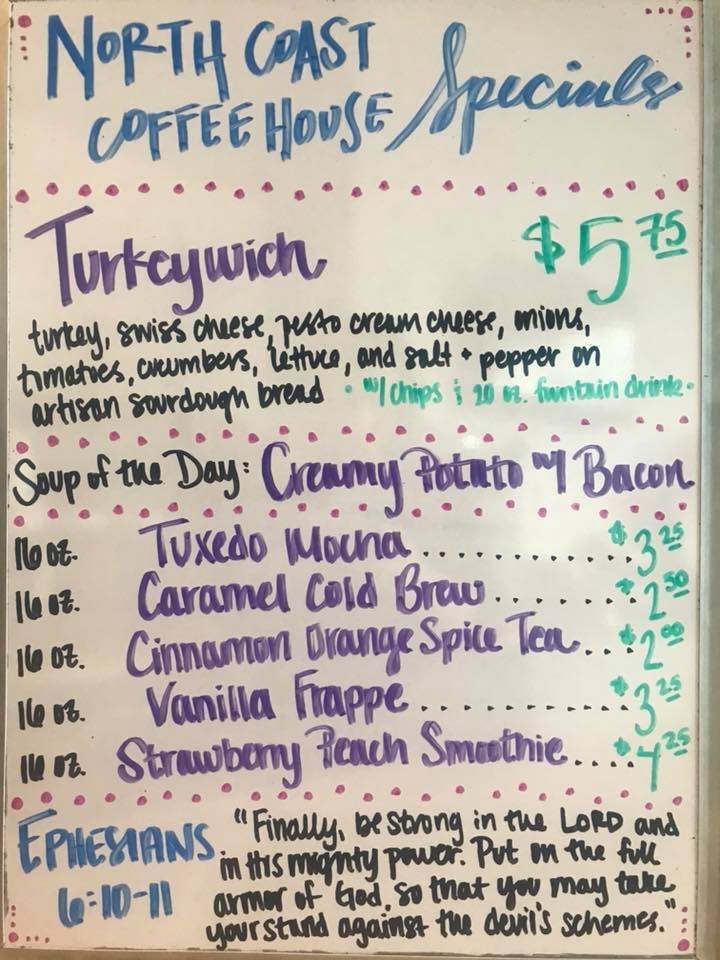 NORTH COAST
COFFEE HOUSE Specials
Turkeywich $5 75
turkey, swiss cheese, pesto cream cheese, onions,
tomatoes, cucumbers, lettuce, and salt + pepper on
artisan sourdough bread • w/ chips & 20 oz. fountain drink •
Soup of the Day: Creamy Potato w/ Bacon
16 oz. Tuxedo Mocha .......... $3 25
16 oz. Caramel Cold Brew ....... $2 50
16 oz. Cinnamon Orange Spice Tea ... $2 00
16 oz. Vanilla Frappe .......... $3 25
16 oz. Strawberry Peach Smoothie .... $4 25
EPHESIANS "Finally, be strong in the LORD and
in His mighty power. Put on the full
6:10-11 armor of God, so that you may take
your stand against the devil's schemes."